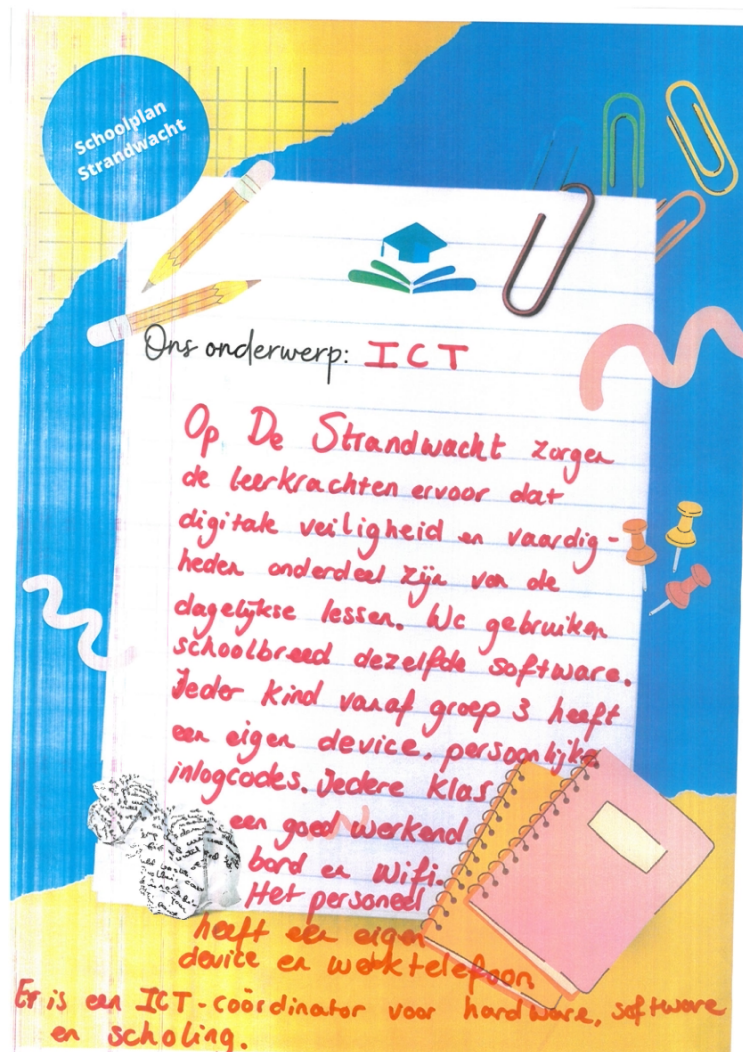 Schoolplan
Strandwacht
Ons onderwerp: ICT
Op De Strandwacht zorgen
de leerkrachten ervoor dat
digitale veiligheid en vaardig-
heden onderdeel zijn van de
dagelijkse lessen. We gebruiken
schoolbreed dezelfde software.
Ieder kind vanaf groep 3 heeft
een eigen device. persoonlijke
inlogcodes. Iedere klas
een goed werkend
bord en wifi.
Het personeel
heeft een eigen
device en werktelefoon
Er is een ICT-coördinator voor hardware, software
en scholing.